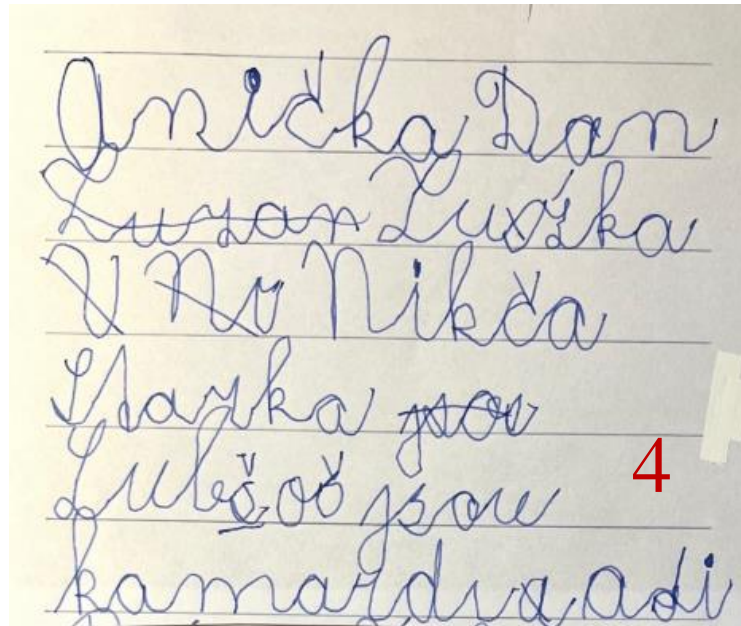 Anička, Dan
Zuzan Zuzka
V No Nikča
Starka jsou
Luboš jsou
4
kamardia, Adi